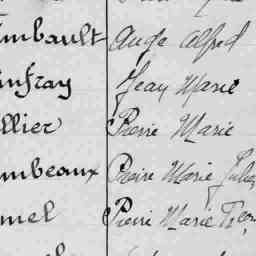 mbault Ange Alfred
nfray Jean Marie
llier Pierre Marie
mbeaux Pierre Marie Julien
mel Pierre Marie